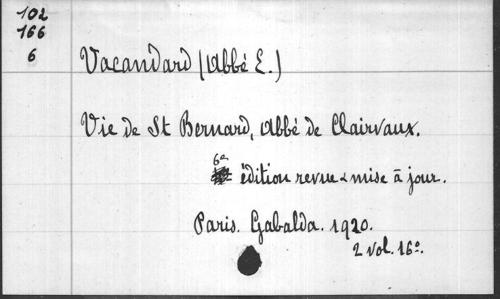 102
166
6
Vacandard (Abbé E.)
Vie de St Bernard, Abbé de Clairvaux.
6e
édition revue & mise à jour.
Paris. Gabalda. 1920.
2 vol. 16º.